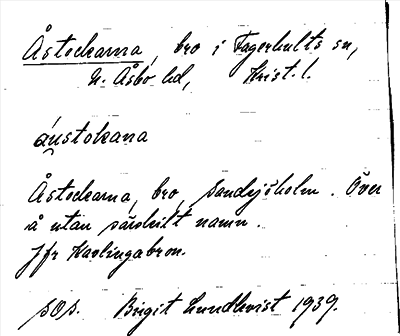 Åstockarna, bro i Fagerhults sn,
N. Åsbo hd, Krist. l.
áustokana
Åstockarna, bro, Sandsjöholm. Över
å utan särskilt namn.
Jfr Kavlingabron.
SOS. Birgit Lundkvist 1939.